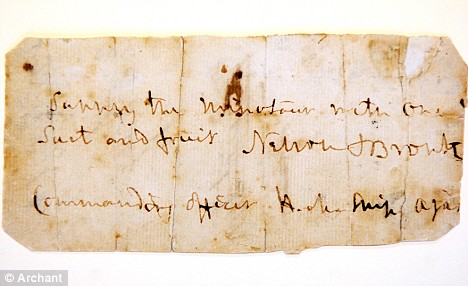 Supply the Minotaur with one
suet and fruit Nelson & Bronte
Commanding officer H.M. Ship
© Archant